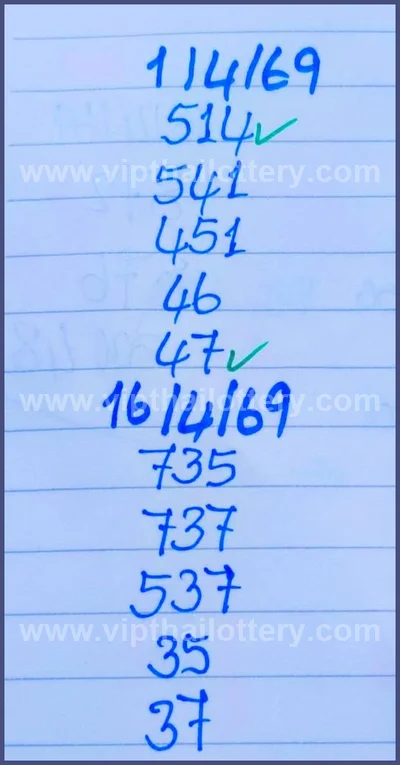 1/4/69
514✓
www.vipthailottery.com
541
451
46
47✓
www.vipthailottery.com
16/4/69
735
737
537
www.vipthailottery.com
35
37